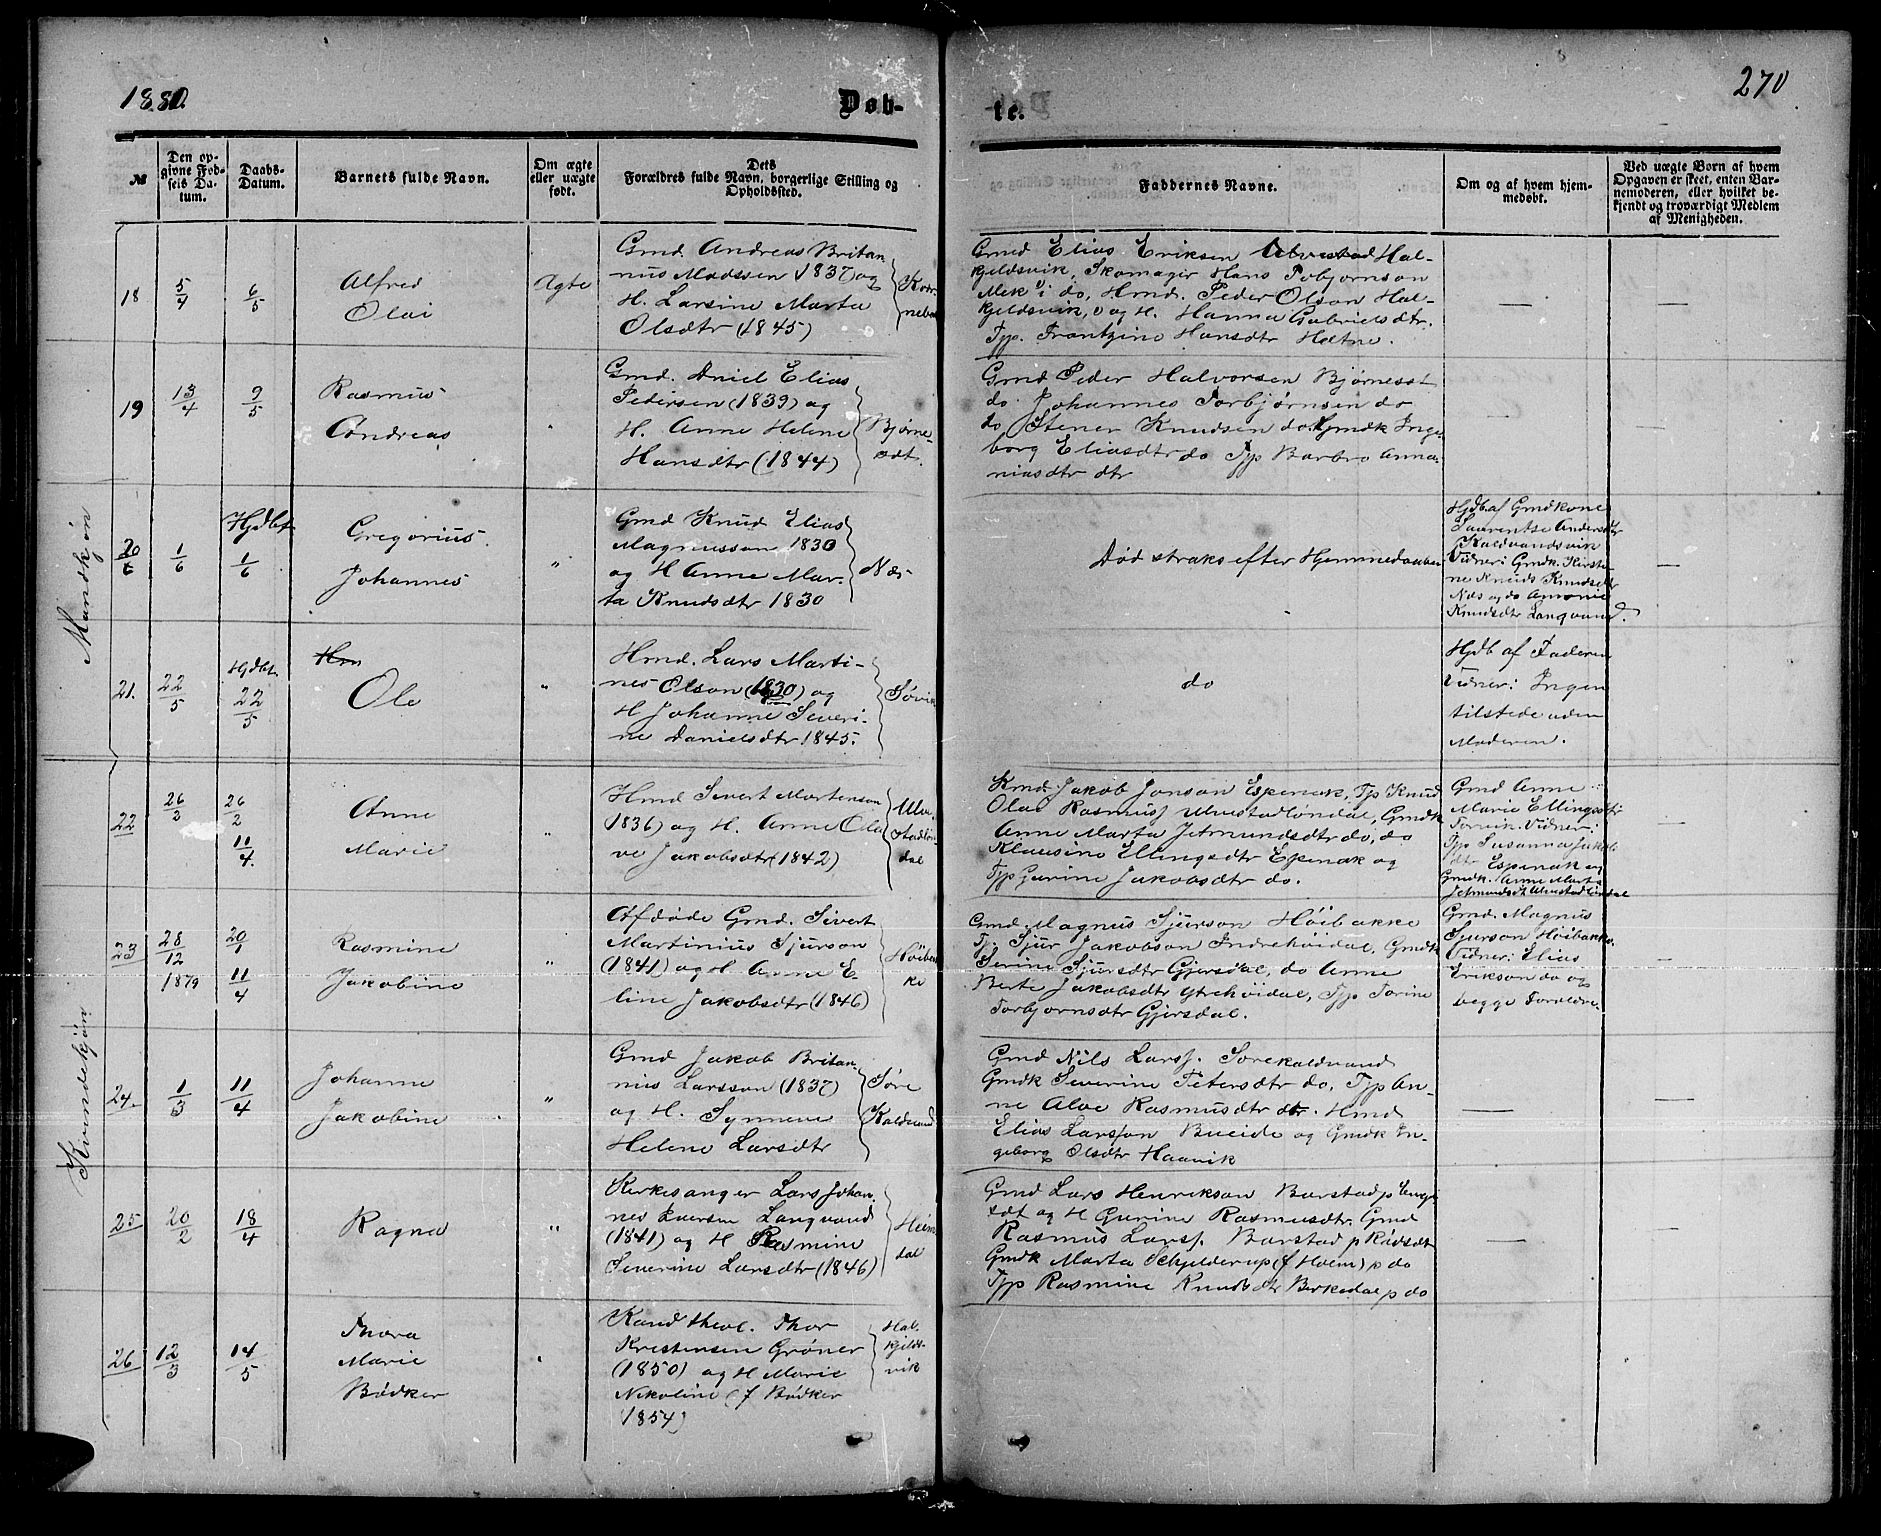 1880.
Døb-
te.
270
№
Den op-
givne Fød-
sels Da-
tum.
Daabs-
Datum.
Barnets fulde Navn.
Om ægte
eller uægte
født.
Dets
Forældres fulde Navn, borgerlige Stilling og
Opholdssted.
Faddernes Navne.
Om og af hvem hjem-
medøbt.
Ved uægte Børn af hvem
Opgaven er skeet, enten Bar-
nemoderen, eller hvilket be-
kjendt og troværdigt Medlem
af Menigheden.
Mandkjøn
18
5/4
6/5
Alfred
Olai
Ægte
Gmd. Andreas Britan
nius Madssen (1837) og
H. Larsine Marta
Olsdtr (1845)
Gmd Elias Eriksen Ulvestad Hal-
kjeldsvik, Skomager Hans Tobjørnson
Mek i do, Hmd. Peder Olson Hal-
kjeldsvik, og H. Hanna Gabrielsdtr.
Tjp. Frantzine Hansdtr Hatne.
—
—
19
13/4
9/5
Rasmus
Andreas
"
Gmd. Dniel Elias
Pedersen (1839) og
H. Anne Helene
Hansdtr (1844)
Bjørne-
sdt.
Gmd Peder Halvorsen Bjørnesst
do Johannes Torbjørnsen do
do Stener Knudsen do Gmdk Inge
borg Eliasdtr do Tjp Barbro Anna-
niasdtr dtr
—
—
20
1/6
Hjdbt
1/6
Gregorius
Johannes
"
Gmd Knud Elias
Magnusson 1830
og H Anne Mar-
ta Knudsdtr 1830
Næs
Død straks efter Hjemmedaaben
Hjdb af Gmdkone
Laurentse Andersdtr
Kaldvandsvik
Vidner: Gmdk. Kirsti-
ne Knuds Knudsdtr
Næs og do
Knudsdtr Langvand.
—
21.
22/5
Hjdbt.
22/5
Ole
"
Hmd. Lars Marti-
nes Olson (1830) og
H Johanne Severi-
ne Danielsdtr 1845.
Søvik
do
Hjdb af Faderen
Vidner: Ingen
tilstede uden
Moderen.
Kvindekjøn
22
26/2
26/2
11/4.
Anne
Marie
"
Hmd Sivert Mortenson
(1836) og H. Anne Ola
ve Jakobsdtr (1842)
Ulve-
stadløn-
dal
Kmd. Jakob Jonson Espenak, Tjp Knud
Olai Rasmusj Ulvestadløndal, Gmdk
Anne Marta Jetmundsdtr do, do
Klausine Ellingsdtr Espenak og
Tjp Gurine Jakobsdtr do.
Gmd Anne
Marie Ellingsdtr
Torvik. Vidner:
Tjp Susanna Jakob
dtr Espenak og
Gmdk. Anne Marta
Jetmundsdt Ulvestadløndal
—
23
28/12
1879
20/1
11/4
Rasmine
Jakobine
"
Afdøde Gmd. Sivert
Martinius Sjurson
(1841) og H. Anne E
line Jakobsdtr (1846)
Høibak
ke
Gmd. Magnus Sjurson Høibakke
Tj. Sjur Jakobson Indrehøidal, Gmdk
Serine Sjursdtr Gjersdal, do Anne
Berte Jakobsdtr Ytrehøidal, Tjp Torine
Torbjørnsdtr Gjersdal.
Gmd. Magnus
Sjurson Høibakke.
Vidner: Elias
Erikson do og
begge Forældre.
—
24.
1/3
11/4
Johanne
Jakobine
"
Gmd Jakob Britan-
nius Larsson (1837)
og H. Synneve
Helene Larsdtr
Søre
Kaldvand
Gmd Nils Larsj. Sørekaldvand
Gmdk Severine Petersdtr do, Tjp An-
ne Alve Rasmusdtr dtr. Hmd
Elias Larsson Bueide og Gmdk In-
geborg Olsdtr Haavik
—
—
25
20/2
18/4
Ragna
"
Kirkesanger Lars Johan-
nes Iversen Langvand
(1841) og H Rasmine
Severine Larsdtr (1846)
Heim
dal
Gmd Lars Henrikson Barstad p Engi
sdt og H Gurine Rasmusdtr. Gmd
Rasmus Larsj. Barstad p Rødsdt
Gmdk Marta Schjelderup (f Holm) p do
Tjp Rasmine Knudsdtr Birkedal p do
—
—
26
12/3
14/5
Thora
Marie
Bødker
"
Kand theol. Thor
Kristensen Grøner
(1850) og H Marie
Nikoline (f Bødker
1854)
Hal-
kjelds-
vik